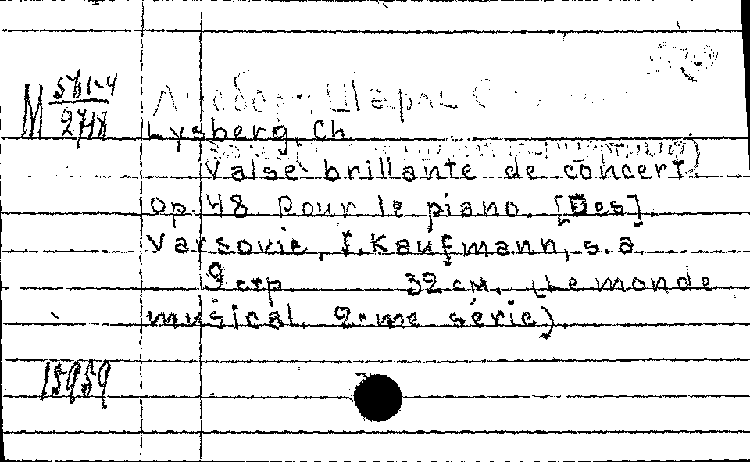 М 561-4
2718
Шарль
Lysberg, Ch.
Valse brillante de concert
op. 48 pour le piano. [Des].
Varsovie, J. Kaufmann, s.a.
9 стр. 32 см. (Le monde
musical. 2-me série).
15959